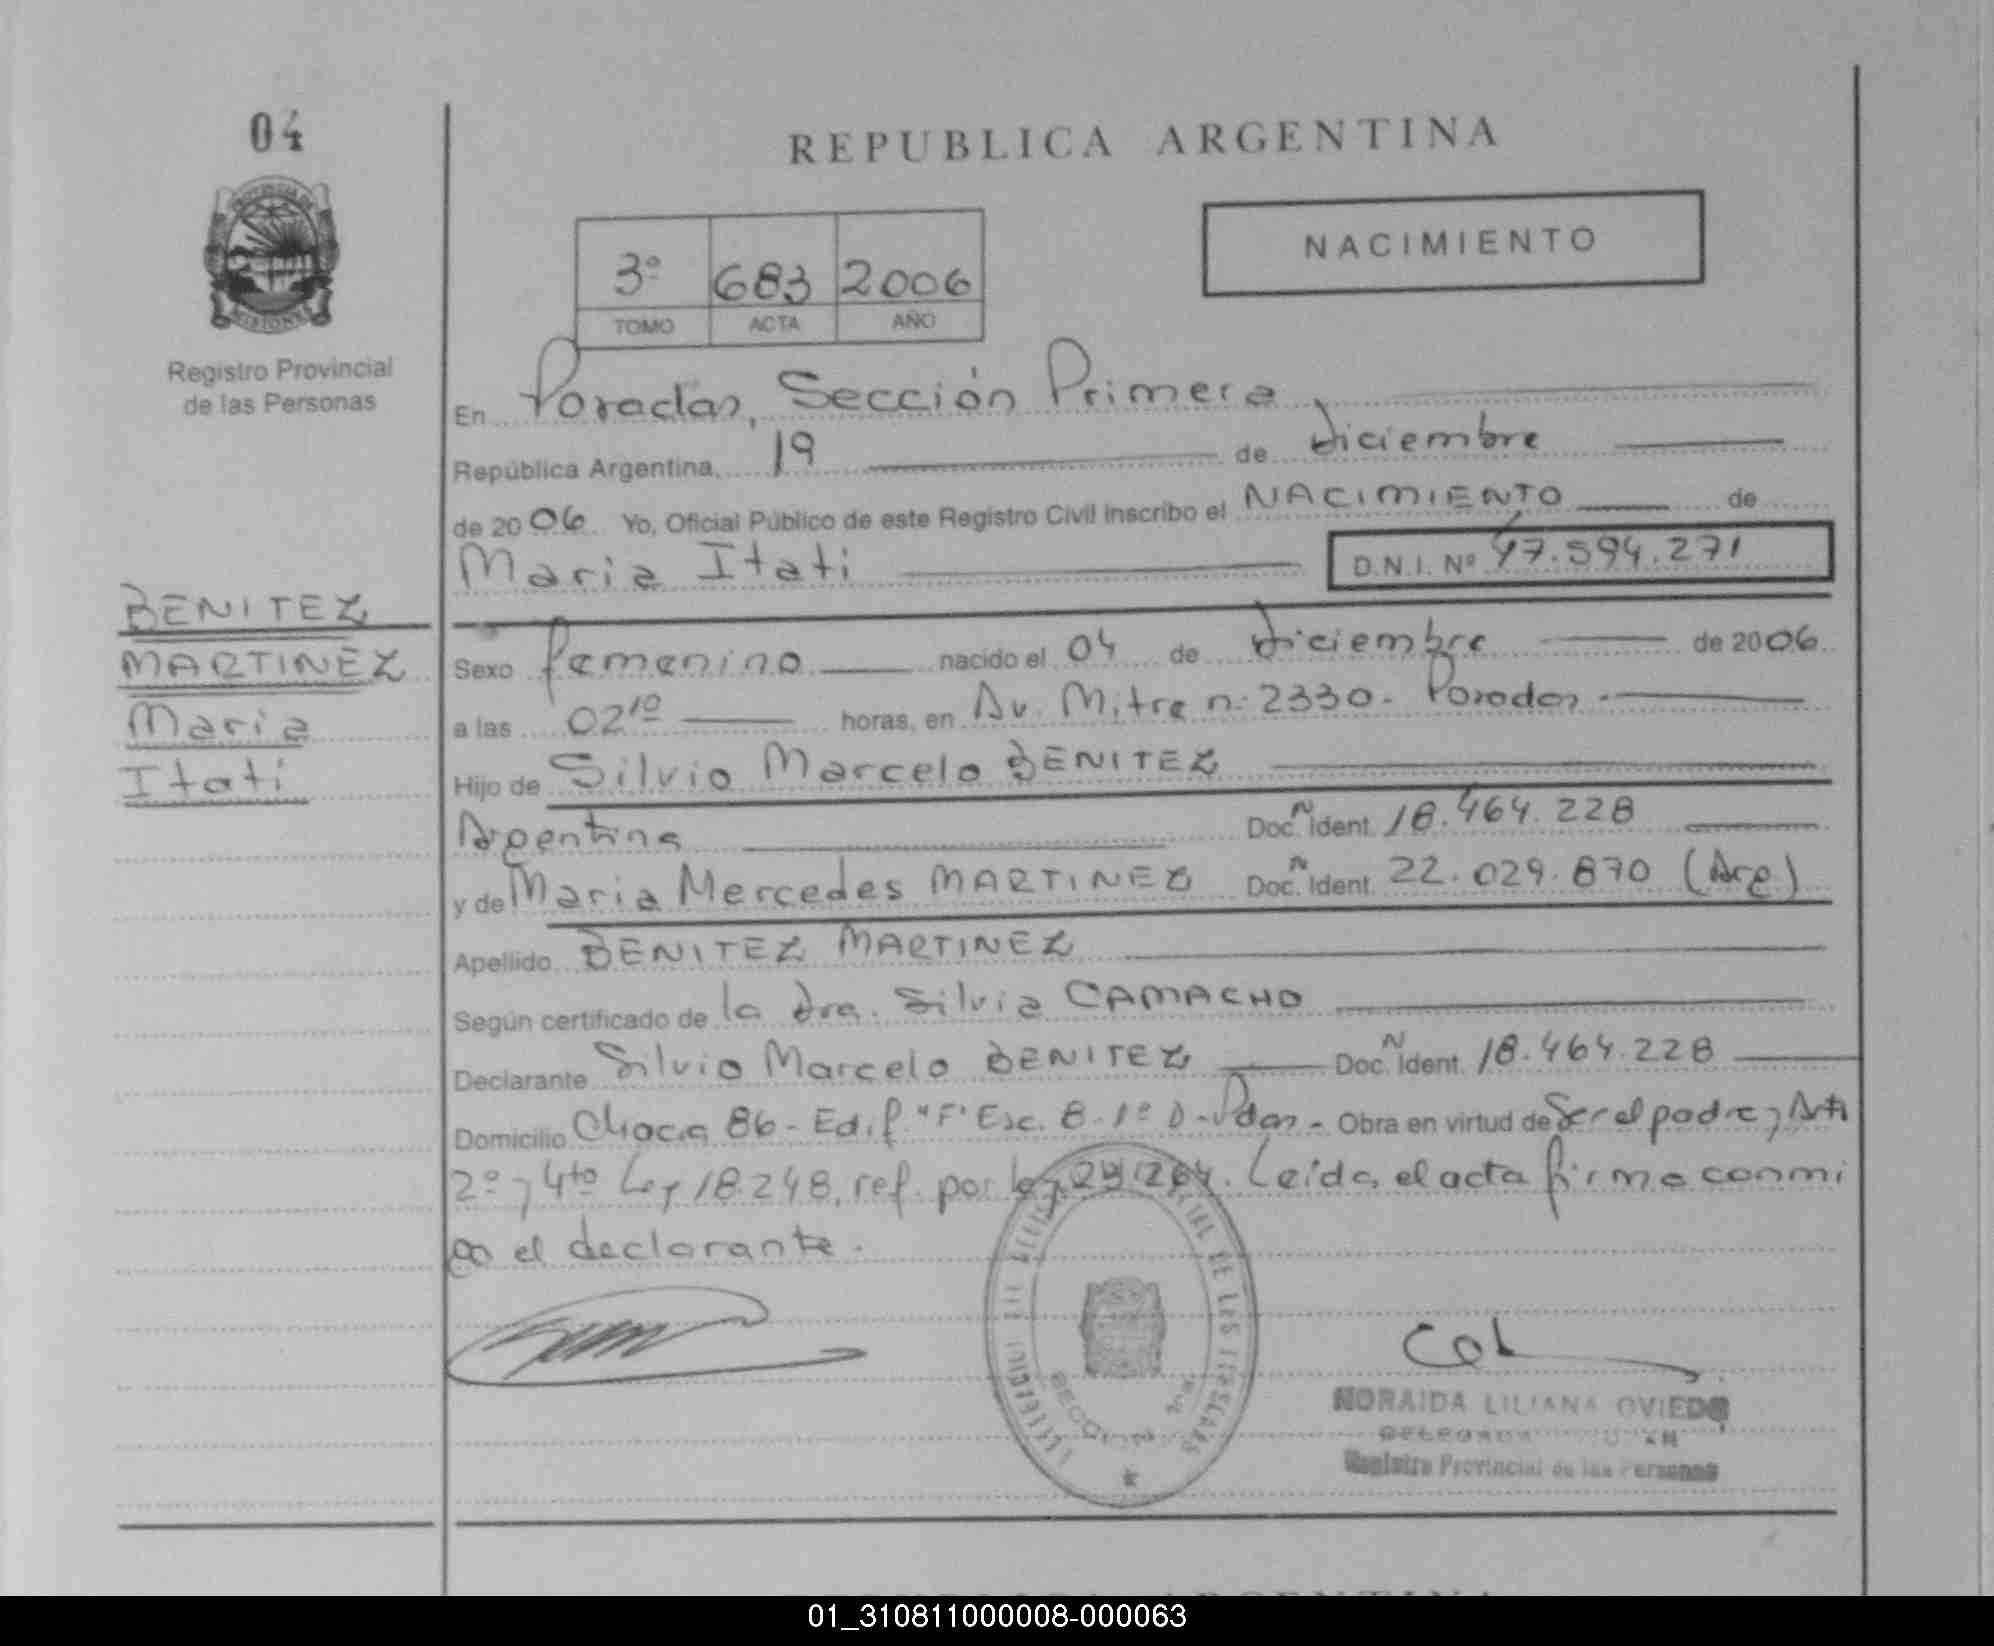 04
REPUBLICA ARGENTINA
NACIMIENTO
3º 683 2006
TOMO ACTA AÑO
MISIONES
Registro Provincial
de las Personas
En Posadas, Sección Primera
República Argentina, 19 de diciembre
de 2006 Yo, Oficial Público de este Registro Civil inscribo el NACIMIENTO de
Maria Itati D.N.I. Nº 47.594.271
BENITEZ
MARTINEZ
Maria
Itati
Sexo femenino nacido el 04 de diciembre de 2006
a las 02¹⁰ horas, en Av. Mitre n: 2330 - Posadas -
Hijo de Silvio Marcelo BENITEZ
Argentina Doc. Ñ Ident. 18.464.228
y de Maria Mercedes MARTINEZ Doc. Ñ Ident. 22.029.870 (Arg)
Apellido BENITEZ MARTINEZ
Según certificado de la Dra. Silvia CAMACHO
Declarante Silvio Marcelo BENITEZ Doc. N Ident. 18.464.228
Domicilio Chacra 86 - Edif. "F" Esc. 8 - 1º D - Pdas - Obra en virtud de Ser el padre y Art
2º y 4to Ley 18.248, ref. por Ley 24.264. Leída el acta firma conmi
go el declarante.
NORAIDA LILIANA OVIEDO
Registro Provincial de las Personas
01_310811000008-000063